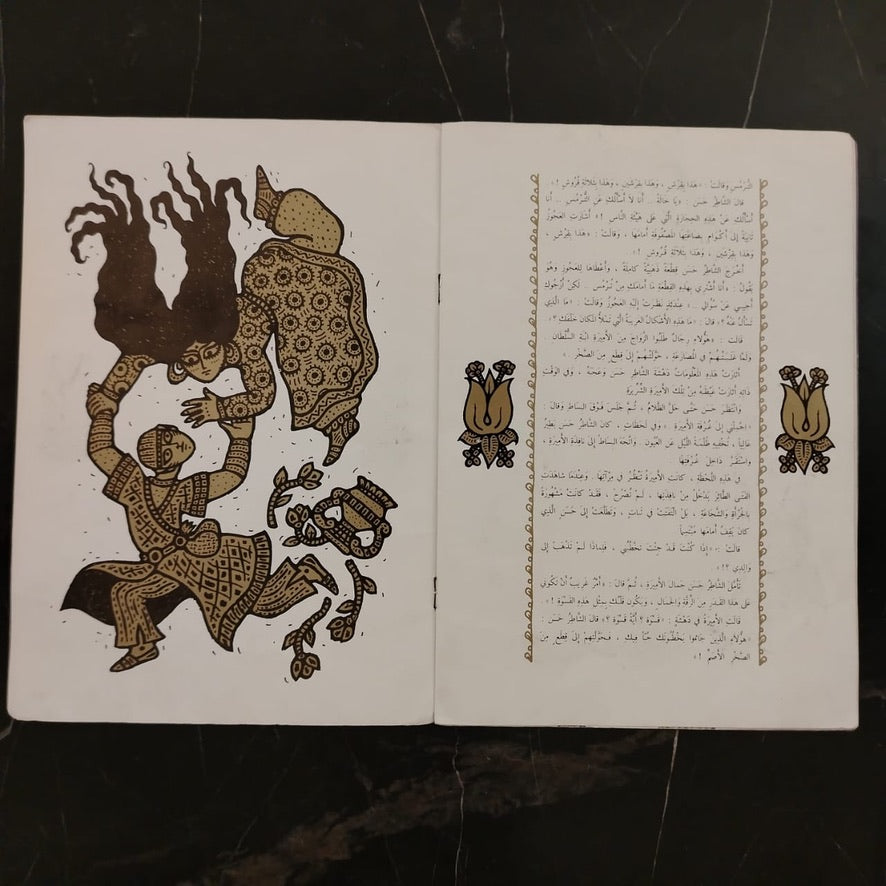 التُّرمُسِ وَقَالَتْ : «هَذَا بِقِرْشٍ ، وَهَذَا بِقِرْشَيْنِ ، وَهَذَا بِثَلَاثَةِ قُرُوشٍ !»
قَالَ الشَّاطِرُ حَسَن : «يَا خَالَةُ .. أَنَا لَا أَسْأَلُكِ عَنِ التُّرْمُسِ .. أَنَا
أَسْأَلُكِ عَنْ هَذِهِ الْحِجَارَةِ الَّتِي عَلَى هَيْئَةِ النَّاسِ !» أَشَارَتِ الْعَجُوزُ
ثَانِيَةً إِلَى أَكْوَامِ بِضَاعَتِهَا الْمَصْفُوفَةِ أَمَامَهَا ، وَقَالَتْ : «هَذَا بِقِرْشٍ ،
وَهَذَا بِقِرْشَيْنِ ، وَهَذَا بِثَلَاثَةِ قُرُوشٍ !»
أَخْرَجَ الشَّاطِرُ حَسَن قِطْعَةً ذَهَبِيَّةً كَامِلَةً ، وَأَعْطَاهَا لِلْعَجُوزِ وَهُوَ
يَقُولُ : «أَنَا أَشْتَرِي بِهَذِهِ الْقِطْعَةِ مَا أَمَامَكِ مِنْ تُرْمُسٍ .. لَكِنْ أَرْجُوكِ
أَجِيبِي عَنْ سُؤَالِي .. عِنْدَئِذٍ نَظَرَتْ إِلَيْهِ الْعَجُوزُ وَقَالَتْ : «مَا الَّذِي
تَسْأَلُ عَنْهُ ؟» قَالَ : «مَا هَذِهِ الْأَشْكَالُ الْغَرِيبَةُ الَّتِي تَمْلَأُ الْمَكَانَ خَلْفَكِ ؟»
قَالَتْ : «هَؤُلَاءِ رِجَالٌ طَلَبُوا الزَّوَاجَ مِنَ الْأَمِيرَةِ ابْنَةِ السُّلْطَانِ .
وَلَمَّا غَلَبَتْهُمْ فِي الْمُصَارَعَةِ ، حَوَّلَتْهُمْ إِلَى قِطَعٍ مِنَ الصَّخْرِ .»
أَثَارَتْ هَذِهِ الْمَعْلُومَاتُ دَهْشَةَ الشَّاطِرِ حَسَن وَعَجَبَهُ ، وَفِي الْوَقْتِ
ذَاتِهِ أَثَارَتْ غَيْظَهُ مِنْ تِلْكَ الْأَمِيرَةِ الشِّرِّيرَةِ
وَانْتَظَرَ حَسَن حَتَّى حَلَّ الظَّلَامُ ، ثُمَّ جَلَسَ فَوْقَ الْبِسَاطِ وَقَالَ :
احْمِلْنِي إِلَى غُرْفَةِ الْأَمِيرَةِ . وَفِي لَحَظَاتٍ ، كَانَ الشَّاطِرُ حَسَن يَطِيرُ
عَالِيًا ، تُخْفِيهِ ظُلْمَةُ اللَّيْلِ عَنِ الْعُيُونِ . وَاتَّجَهَ الْبِسَاطُ إِلَى نَافِذَةِ الْأَمِيرَةِ ،
وَاسْتَقَرَّ دَاخِلَ غُرْفَتِهَا
فِي هَذِهِ اللَّحْظَةِ ، كَانَتِ الْأَمِيرَةُ تَنْظُرُ فِي مِرْآتِهَا ، وَعِنْدَمَا شَاهَدَتِ
الْفَتَى الطَّائِرَ يَدْخُلُ مِنْ نَافِذَتِهَا ، لَمْ تَصْرُخْ ، فَقَدْ كَانَتْ مَشْهُورَةً
بِالْجُرْأَةِ وَالشَّجَاعَةِ ، بَلِ الْتَفَتَتْ فِي ثَبَاتٍ ، وَتَطَلَّعَتْ إِلَى حَسَن الَّذِي
كَانَ يَقِفُ أَمَامَهَا مُبْتَسِمًا
قَالَتْ : «إِذَا كُنْتَ قَدْ جِئْتَ تَخْطُبُنِي ، فَلِمَاذَا لَمْ تَذْهَبْ إِلَى
وَالِدِي ؟!»
تَأَمَّلَ الشَّاطِرُ حَسَن جَمَالَ الْأَمِيرَةِ ، ثُمَّ قَالَ : «أَمْرٌ غَرِيبٌ أَنْ تَكُونِي
عَلَى هَذَا الْقَدْرِ مِنَ الرِّقَّةِ وَالْجَمَالِ ، وَيَكُونَ قَلْبُكِ بِمِثْلِ هَذِهِ الْقَسْوَةِ !»
قَالَتِ الْأَمِيرَةُ فِي دَهْشَةٍ : «قَسْوَة ؟ أَيَّةُ قَسْوَةٍ ؟» قَالَ الشَّاطِرُ حَسَن :
«هَؤُلَاءِ الَّذِينَ جَاءُوا يَخْطُبُونَكِ حُبًّا فِيكِ ، فَحَوَّلْتِهِمْ إِلَى قِطَعٍ مِنَ
الصَّخْرِ الْأَصَمِّ !»